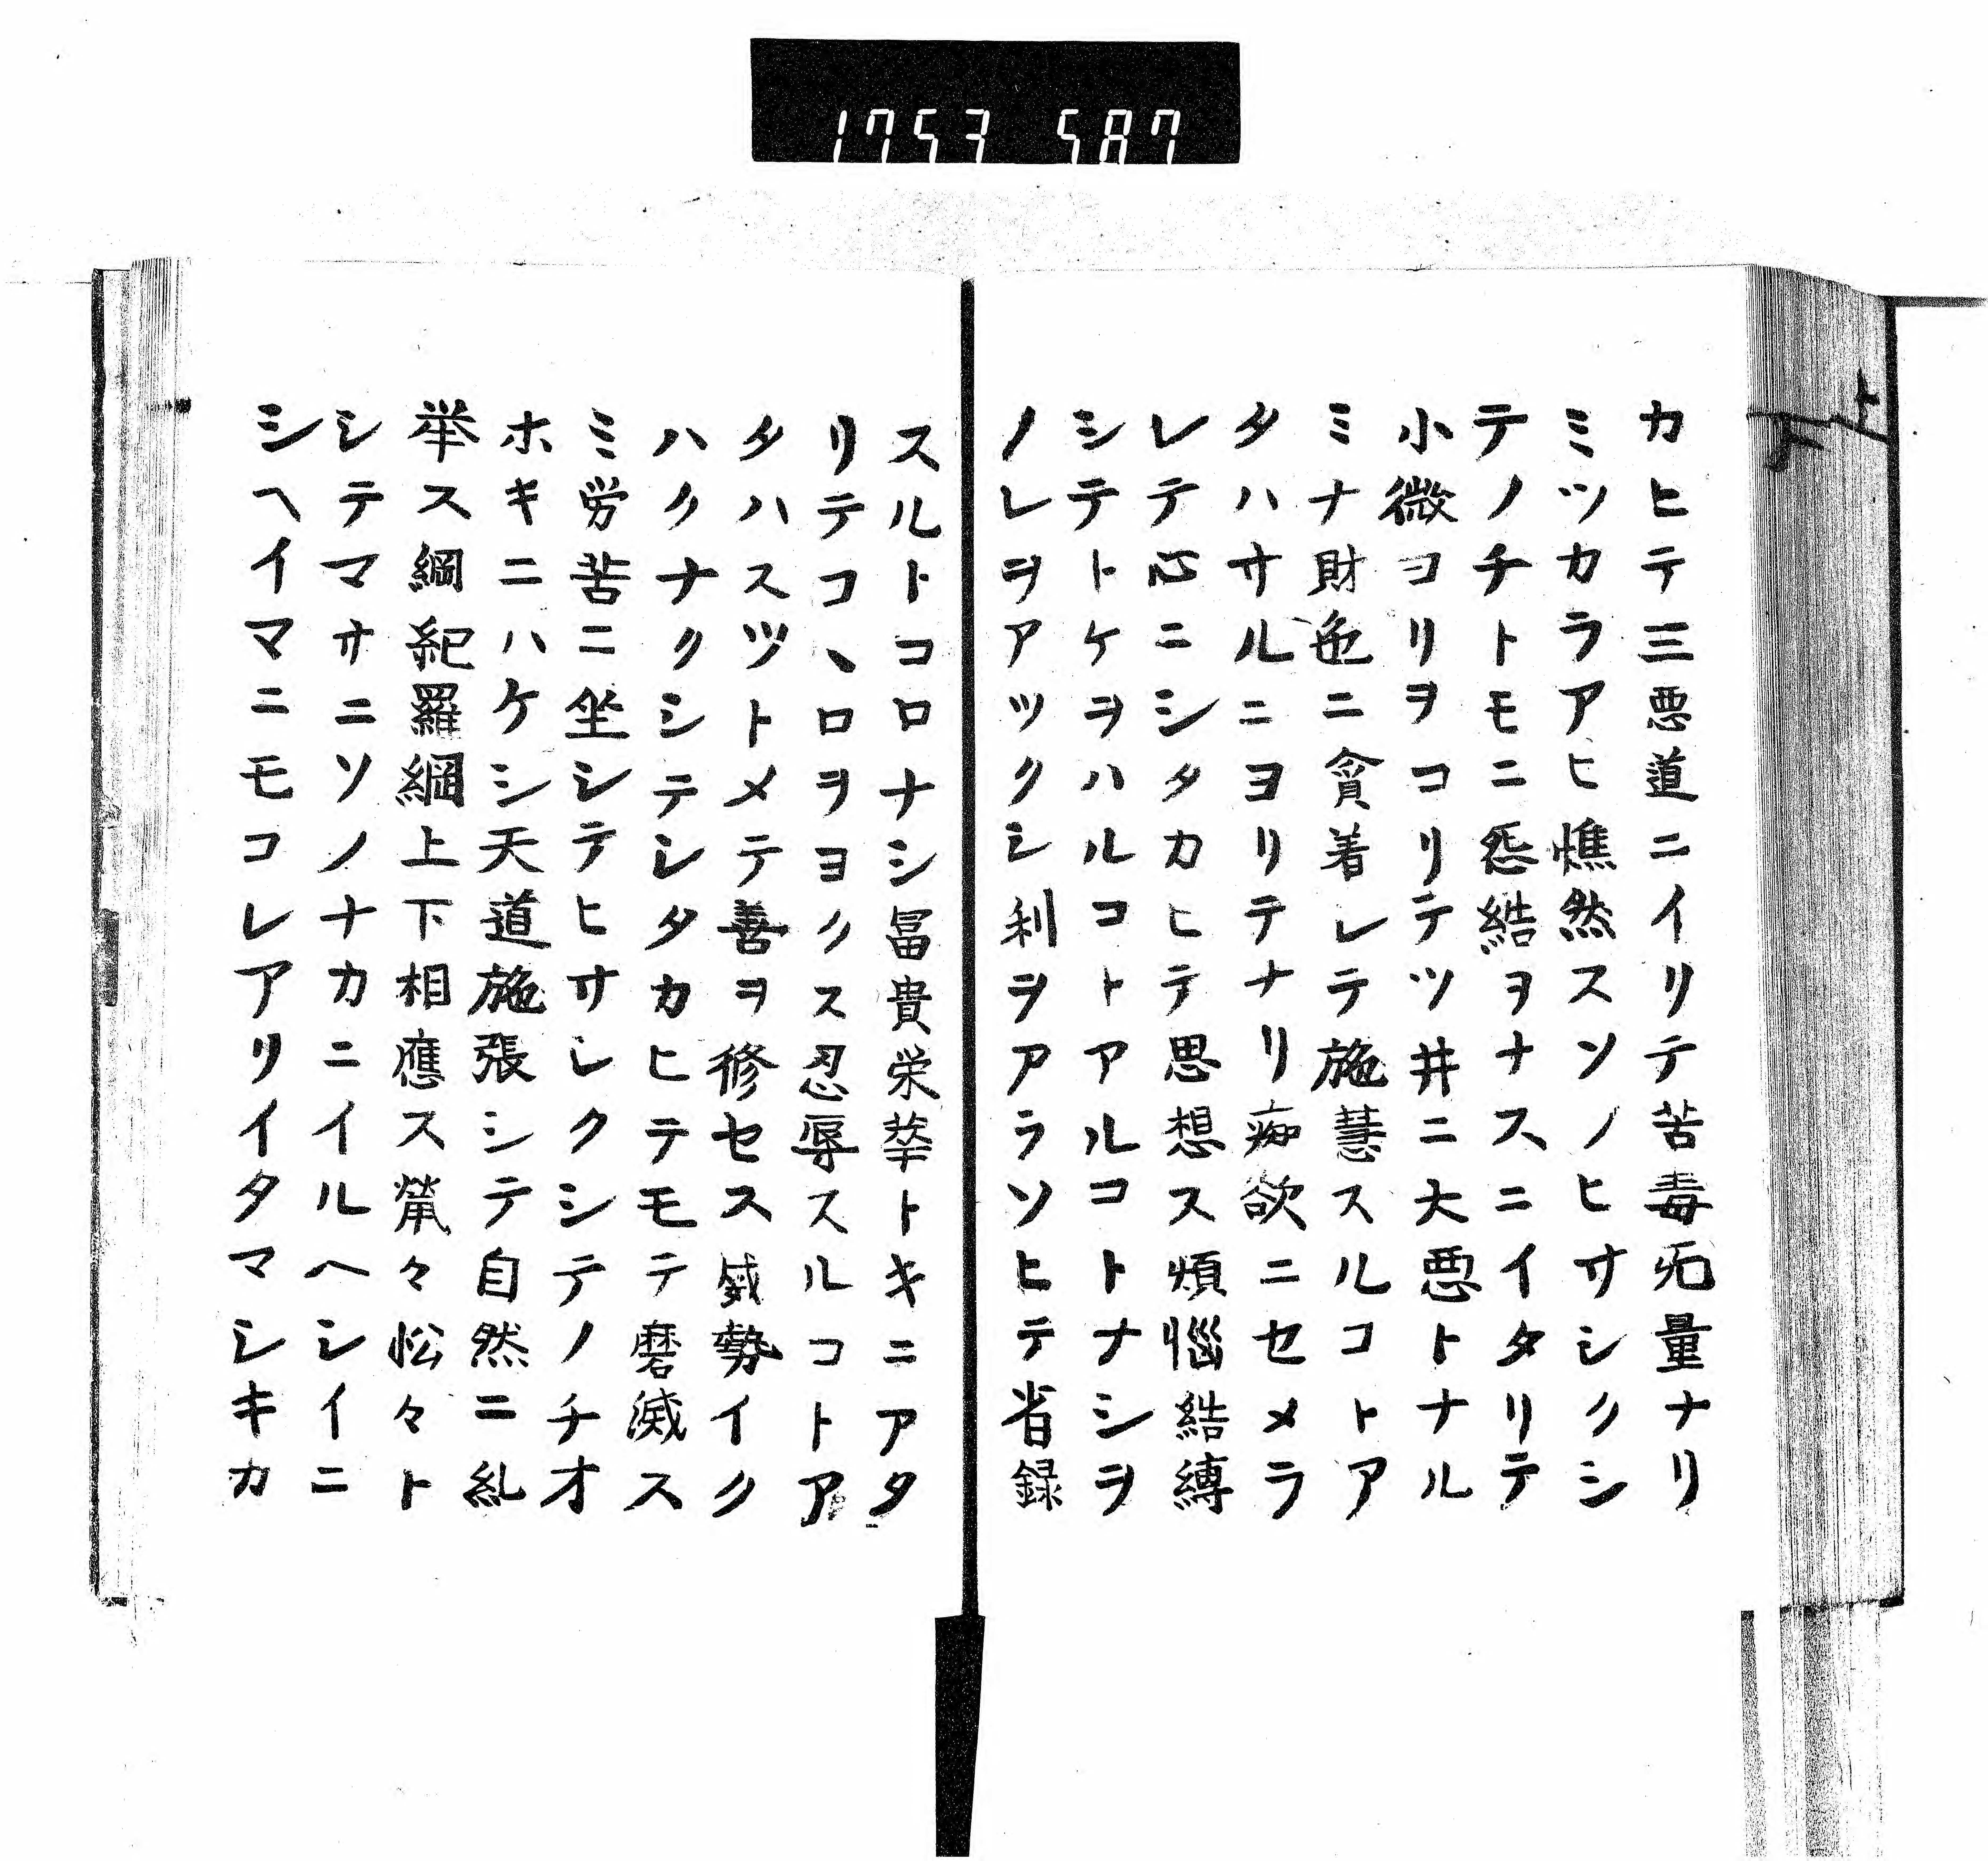 1753 587
カヒテ三悪道ニイリテ苦毒无量ナリ
ミツカラアヒ燋然スソノヒサシクシ
テノチトモニ怨結ヲナスニイタリテ
小微ヨリヲコリテツ井ニ大悪トナル
ミナ財色ニ貪着シテ施慧スルコトア
タハサルニヨリテナリ痴欲ニセメラ
レテ心ニシタカヒテ思想ス煩惱結縛
シテトケヲハルコトアルコトナシヲ
ノレヲアツクシ利ヲアラソヒテ省録
スルトコロナシ冨貴栄華トキニアタ
リテコヽロヲヨクス忍辱スルコトア
タハスツトメテ善ヲ修セス威勢イク
ハクナクシテシタカヒテモテ磨滅ス
ミ労苦ニ坐シテヒサシクシテノチオ
ホキニハケシ天道施張シテ自然ニ糺
挙ス綱紀羅網上下相應ス煢々忪々ト
シテマサニソノナカニイルヘシイニ
シヘイマニモコレアリイタマシキカ